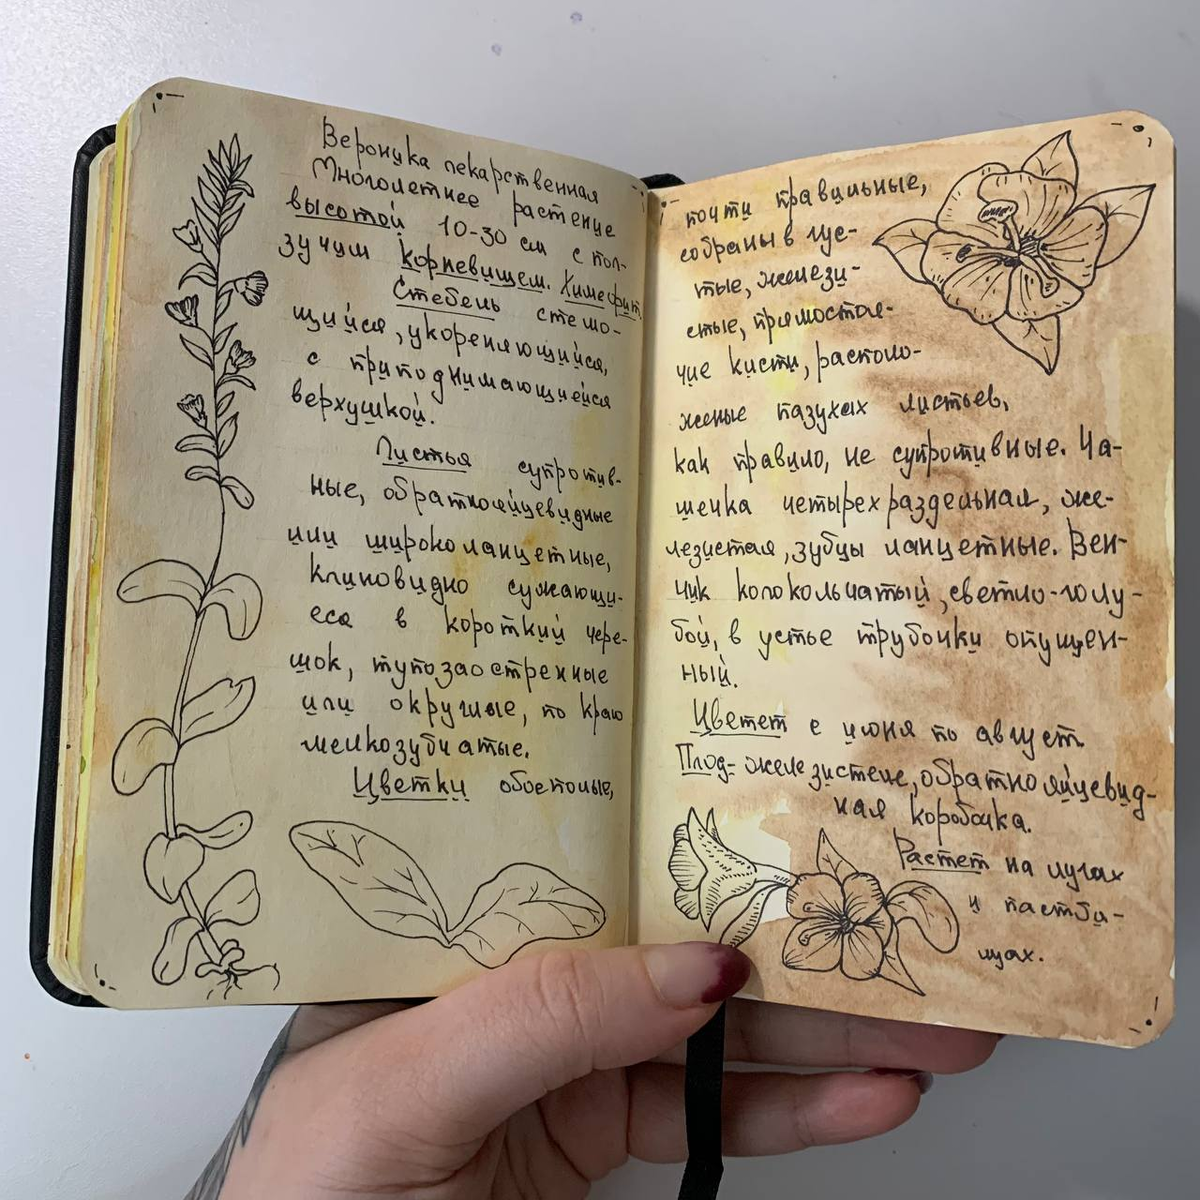 Вероника лекарственная
Многолетнее растение
высотой 10-30 см с пол-
зучим корневищем. Химефит.
Стебель стело-
щийся, укореняющийся,
с приподнимающиейся
верхушкой.
Листья супротив-
ные, обратнояйцевидные
или широколанцетные,
клиновидно сужающи-
еся в короткий чере-
шок, тупозаостренные
или округлые, по краю
мелкозубчатые.
Цветки обоеполые,
почти правильные,
собраны в гус-
тые, железис-
стые, прямостоя-
чие кисти, располо-
женые пазухах листьев,
как правило, не супротивные. Ча-
шечка четырехраздельная, же-
лезистая, зубцы ланцетные. Вен-
чик колокольчатый, светло-голу-
бой, в устье трубочки опушен-
ный.
Цветет с июня по август
Плод- железистене, обратнояйцевид-
ная коробочка.
Растет на лугах
и пастби-
щах.